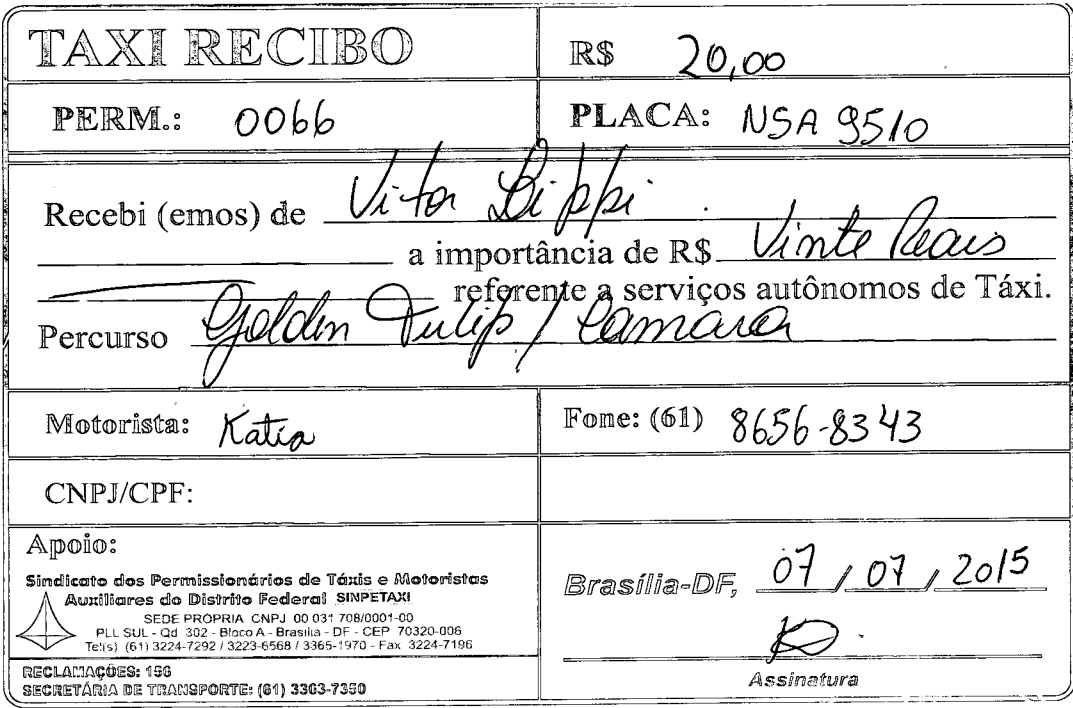 TAXI RECIBO
R$ 20,00
PERM.: 0066
PLACA: NSA 9510
Recebi (emos) de Vitor Lippi
a importância de R$ Vinte Reais
referente a serviços autônomos de Táxi.
Percurso Golden Tulip / Camara
Motorista: Katia
Fone: (61) 8656-8343
CNPJ/CPF:
Apoio:
Sindicato dos Permissionários de Táxis e Motoristas
Auxiliares do Distrito Federal SINPETAXI
SEDE PRÓPRIA CNPJ 00 031 708/0001-00
PLL SUL - Qd 302 - Bloco A - Brasília - DF - CEP 70320-006
Tel(s) (61) 3224-7292 / 3223-6568 / 3365-1970 - Fax 3224-7196
RECLAMAÇÕES: 156
SECRETÁRIA DE TRANSPORTE: (61) 3363-7350
Brasília-DF, 07 / 07 / 2015
Assinatura